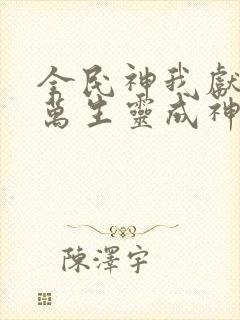 全民神我獻
萬生靈成神
陳澤宇